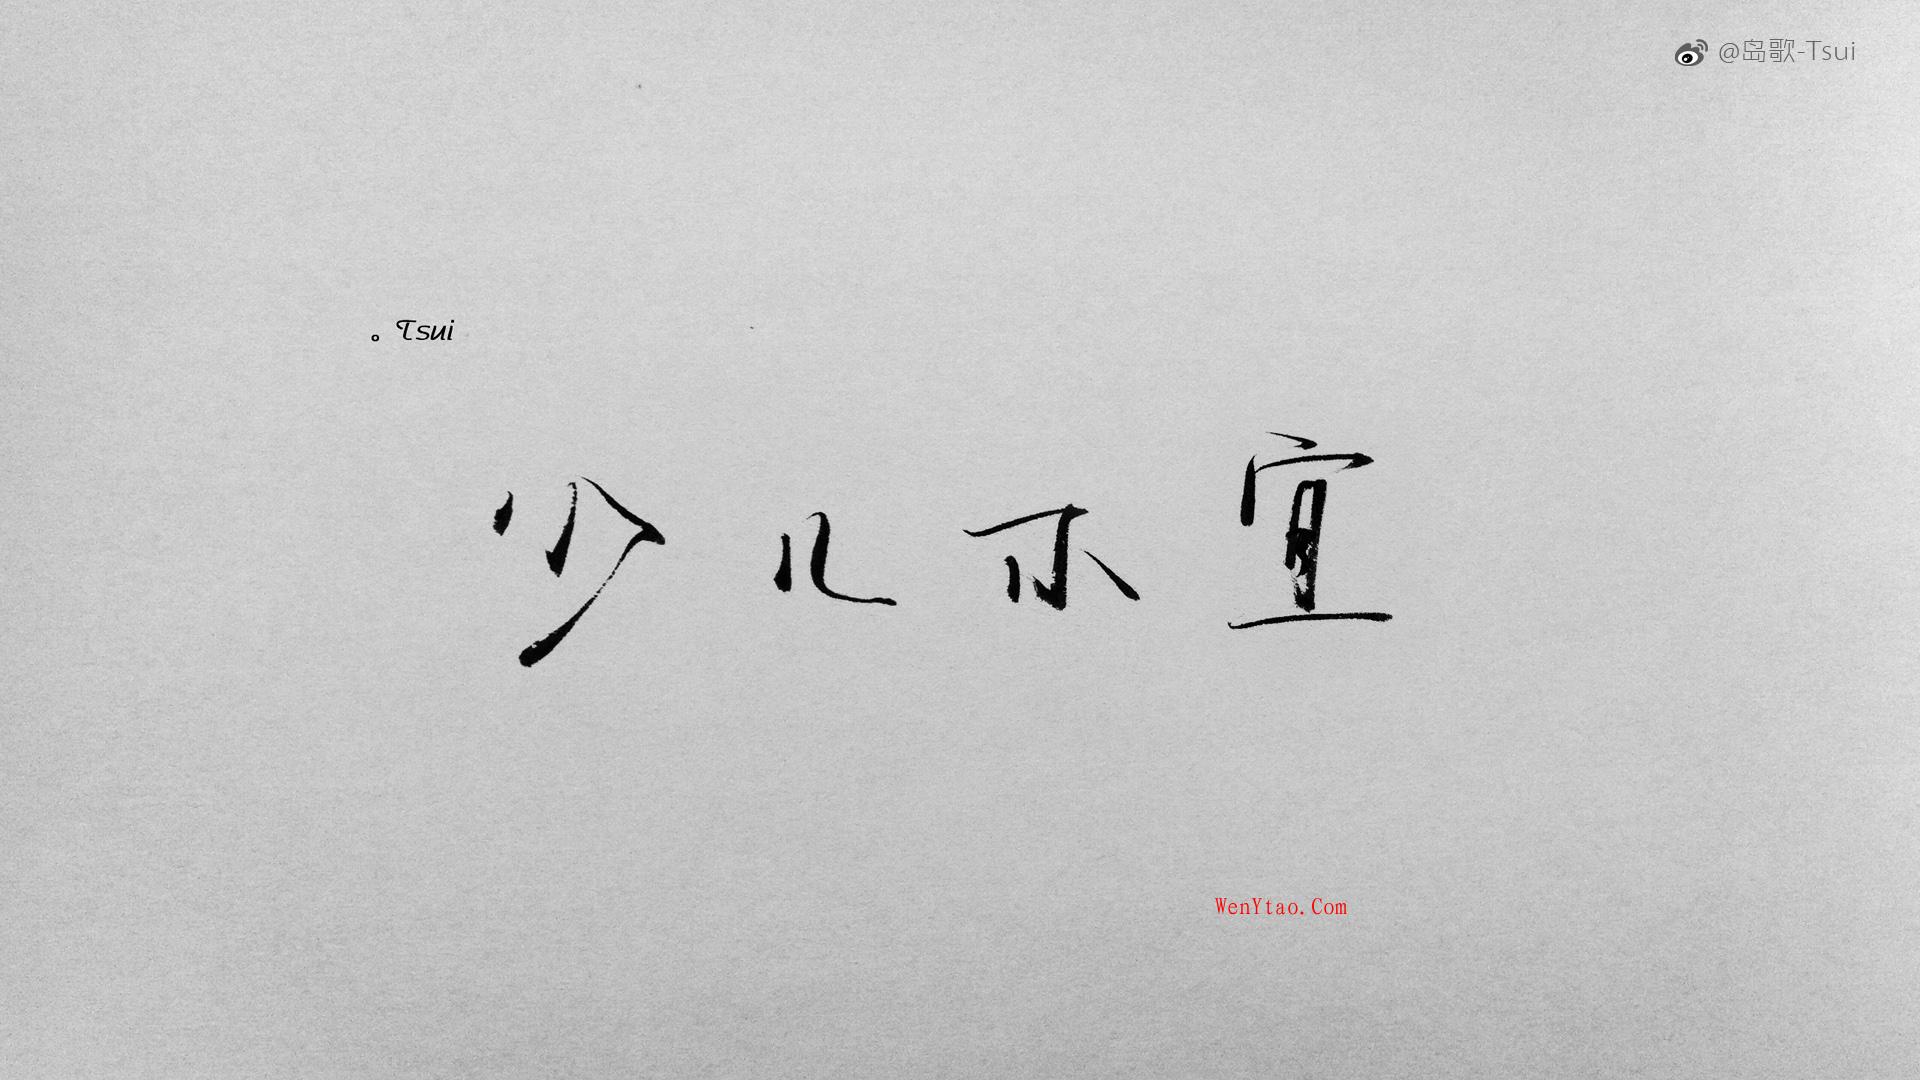 @岛歌-Tsui
。Tsui
少儿不宜
WenYtao.Com